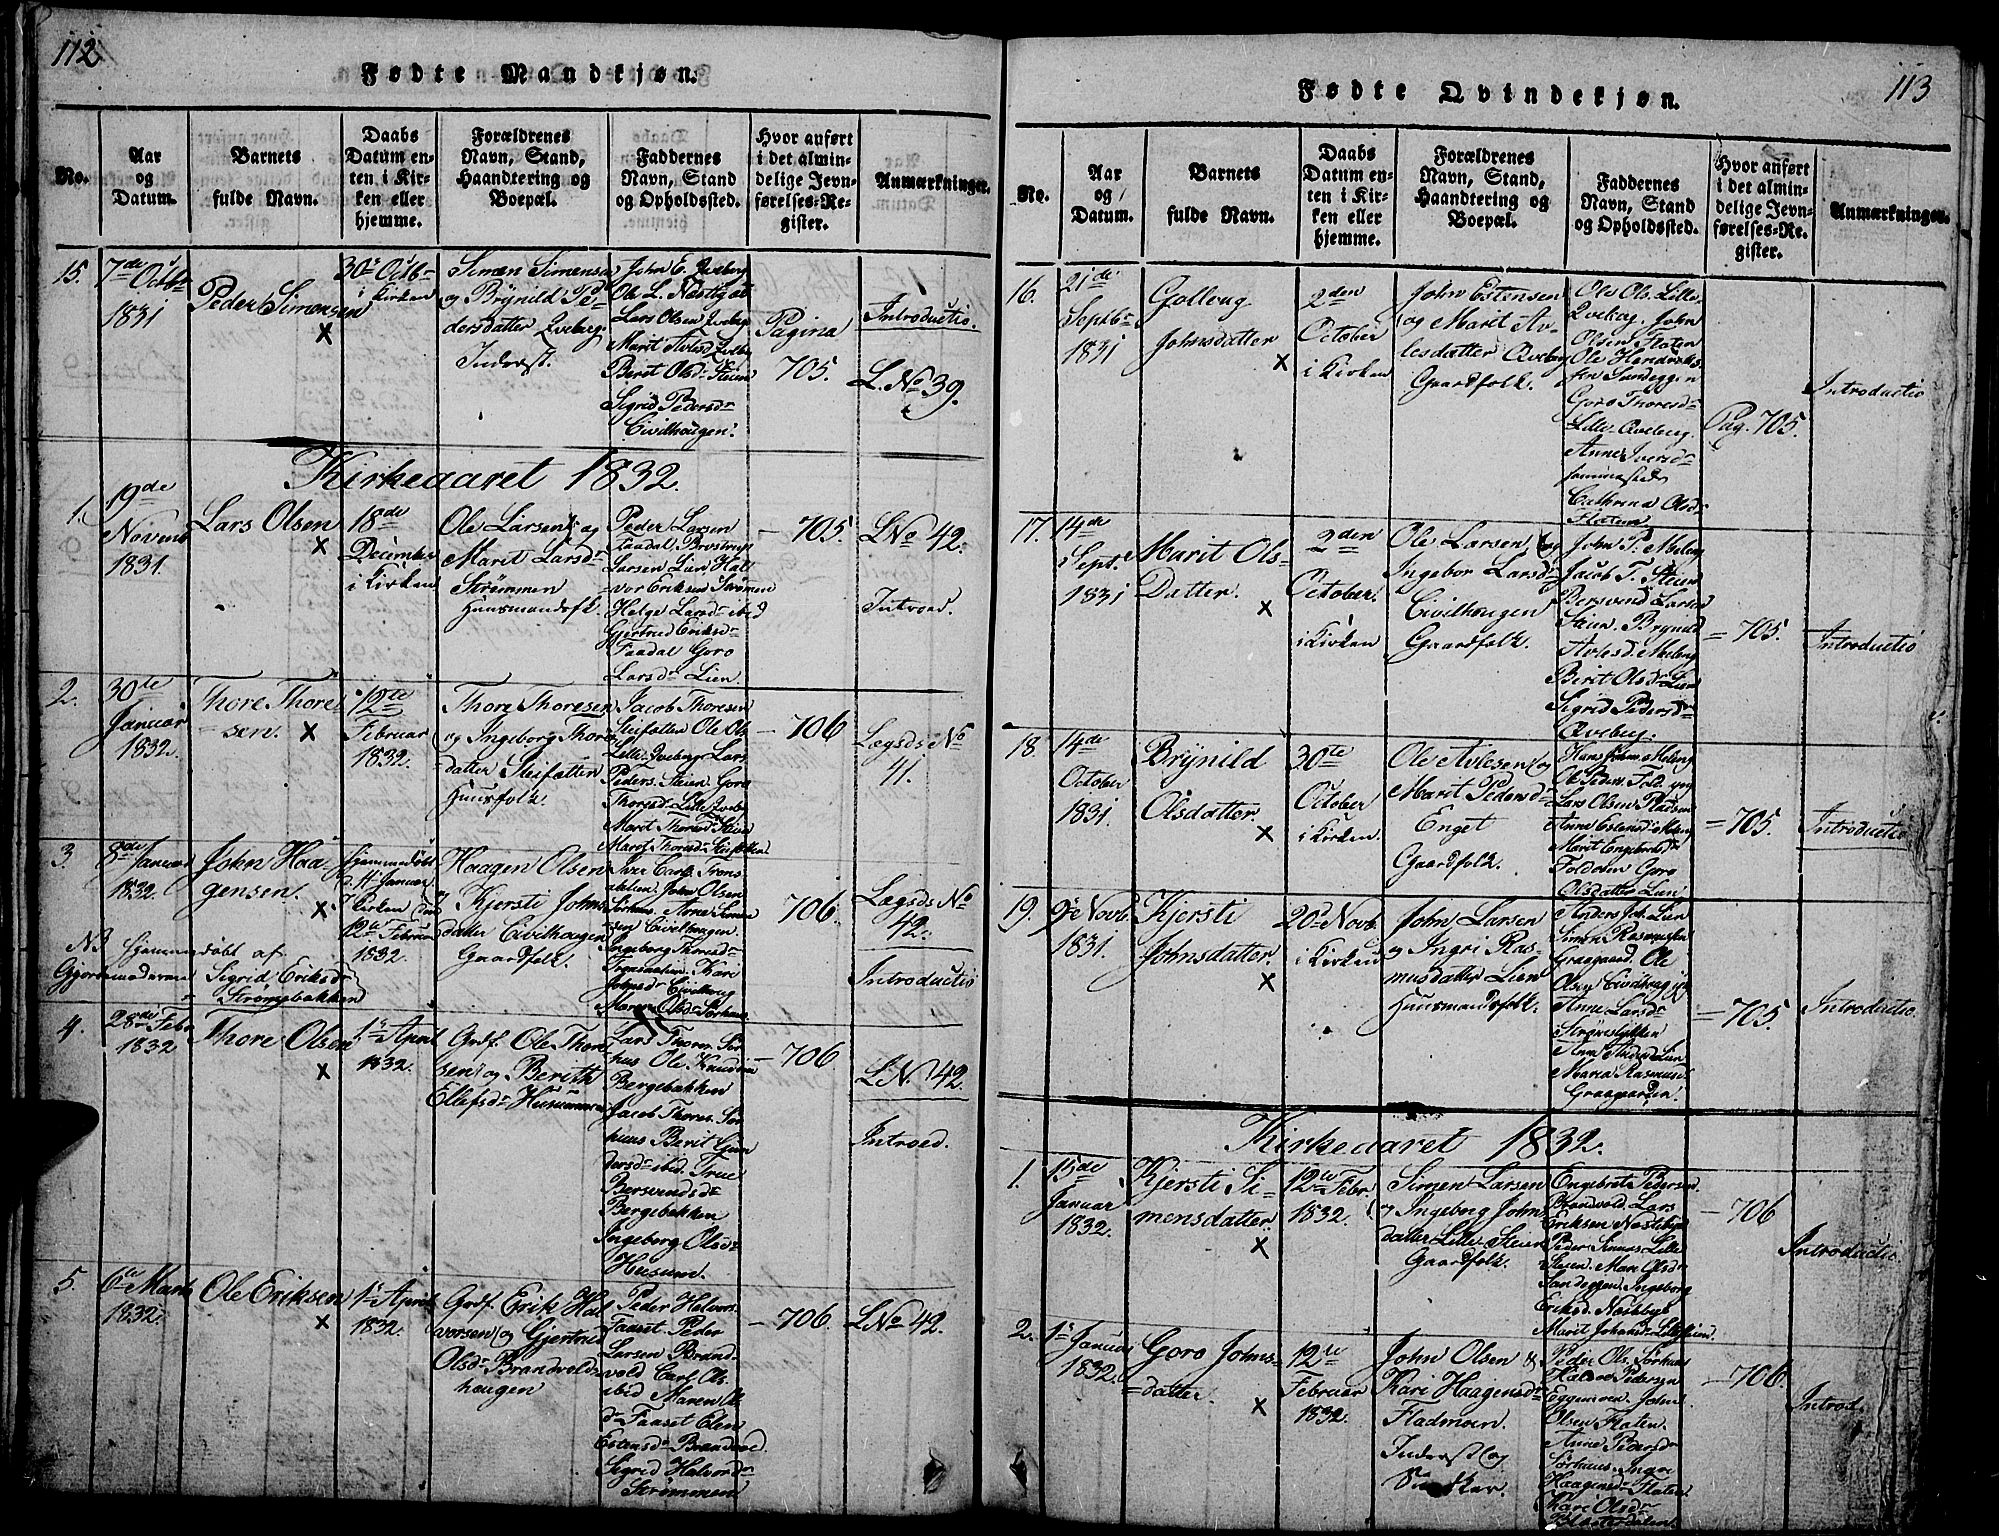 112
Fødte Mandkjøn.
No.
Aar
og
Datum.
Barnets
fulde Navn.
Daabs
Datum en-
ten i Kir-
ken eller
hjemme.
Forældrenes
Navn, Stand,
Haandtering og
Boepæl.
Faddernes
Navn, Stand
og Opholdssted.
Hvor anført
i det almin-
delige Jevn-
førelses-Re-
gister.
Anmærkninger.
15.
7de Octbr
1831
Peder Simonsen
x
30te Octb
i Kirken
Simen Simensen
og Brÿnild Pe-
dersdatter Qveberg
Inderst.
John E. Qveberg
Ole L. Næstby
Lars Olsen Qveberg
Berit Olsdr Steien
Sigrid Pedersdr
Civilhougen.
Pagina
705.
Introductio.
L. No 39.
Kirkeaaret 1832.
1.
19de
Novemb
1831.
Lars Olsen
x
18de
December
i Kirken
Ole Larsen og
Marit Larsdr
Strømmen
Huusmandsfk.
Peder Larsen
Faadal
vor Eriksen Strømen
Helge Larsdr ibid
Gjertrud Eriksdr
Faadal Goro
Larsdr Lien.
705.
LNo 42.
Introd.
2.
30te
Januar
1832.
Thore Thore
sen. x
12te
Februar
1832.
Thore Thoresen
og Ingeborg Thors
datter
Huusfolk.
Jacob Thoresen
Ole Ols
Lille Qveberg Lars
Peders. Steien Goro
Thoresd Lille Qveb
706
Lægsds No
41.
3.
8de Januar
1832.
John Haa-
gensen.
x
Hjemmedøbt
d. 11 Januar
i Kirken den
12te Februar
1832.
Haagen Olsen
og Kjersti Johns
datter Civilhougen
Gaardfolk.
John Olsen
Sørhuus.
706.
Lægsds No
42.
Introductio
NB Hjemmedøbt af
Gjordemoderen
Sigrid Eriksdr
Strømsbakken
4.
28de Febr
1832
Thore Olsen
x
1ste April
1832.
Grdf. Ole Thore
sen og Berith
Ellefsdr Husummen
Lars Thores. Sør
hus Ole Knudsen
Bergebakken
Jacob Thores. Sør
huus Berit Gun
dersdr ibid. True
Bersvendsdr
Bergebakken
Ingeborg Olsdr
Husum.
706
LNo. 42.
Introd.
5.
6te Marts
1832.
Ole Eriksen
x
1ste April
1832.
Grdf. Erik Hal
vorsen og Gjertrud
Olsdr Brandvold-
hougen
Peder Halvors.
Faaset Peder
Larsen Brand
vold Carl Ols.
ibid Maren O
dr Faaset Elen
Estensdr Brandvold.
Sigrid Halvordr
Strømmen
706.
LNo 42.
113
Fødte Qvindekjøn.
No.
Aar
og
Datum.
Barnets
fulde Navn.
Daabs
Datum en-
ten i Kir-
ken eller
hjemme.
Forældrenes
Navn, Stand,
Haandtering og
Boepæl.
Faddernes
Navn, Stand
og Opholdssted.
Hvor anført
i det almin-
delige Jevn-
førelses-Re-
gister.
Anmærkninger.
16.
21de
Septb
1831
Gollaug
Johnsdatter
x
2den
October
i Kirken
John Estensen
og Marit Av-
lesdatter Qveberg
Gaardfolk.
Ole Ols. Lille
Qvebeg. John
Olsen Flaten
Ole Hendriks
sen Sandeggen
Goro Thoresdr
Lille-Qveberg.
Anne Iversdr
Cathrina Olsdr
Flaten
Pag. 705.
Introductio
17.
14de
Sept.
1831
Marit Ols-
Datter.
x
2den
October.
i Kirken
Ole Larsen og
Ingebor Larsdr
Civilhougen
Gaardfolk.
John P. Meleng
Jacob T. Steien
Bersvend Larsen
Steien. Brynild
Avlesd. Meleng
Berit Olsdr Lien
Sigrid Pedersdr
Qveberg.
705.
Introductio
18.
14de
October
1831
Brÿnild
Olsdatter
x
30te
October
i Kirken
Ole Avlesen og
Marit Pedersdr
Enget
Gaardfolk.
Ole Peders. Fold
Lars Olsen Pladsen
Anne Estensd Meleng
Marit Engebretsdr
Foldom Goro
Olsdatter Lien
705.
Introductio
19.
9de Novb.
1831.
Kjersti
Johnsdatter.
x
20de Novb.
i Kirken
John Larsen
og Ingri Ras-
musdatter Lien
Huusmandsfolk.
Anders Joh. Lien
Simen Rasmussen
Graagaard. Ole
Anne Larsdr
Maria Rasmusdr
Graagaarden.
705.
Introductio.
Kirkeaaret 1832.
1.
15de
Januar
1832.
Kjersti Si-
mensdatter.
x
12te Febr.
1832.
Simen Larsen
og Ingeborg Johns
datter Lille-Steien
Gaardfolk.
Engebret Pedersen
Brandvold. Lars
Eriksen Næstebye
Peder Simens. Lille
Steien. Mari Olsdr
Sandeggen Ingeborg
Eriksd. Næstebye
706
Introductio.
2.
1ste
Januar
1832.
Goro Johns-
datter.
x
12te
Februar
1832.
John Olsen &
Kari Haagensdr
Fladmoen
Inderst og
Peder Ols. Sørhuus
Halvor Pedersen
Eggemoen. John
Olsen Flaten.
Anne Pedersdr
Sørhuus. Inger
Haagensdr Flaten
Kari Olsdr
706.
Introd.